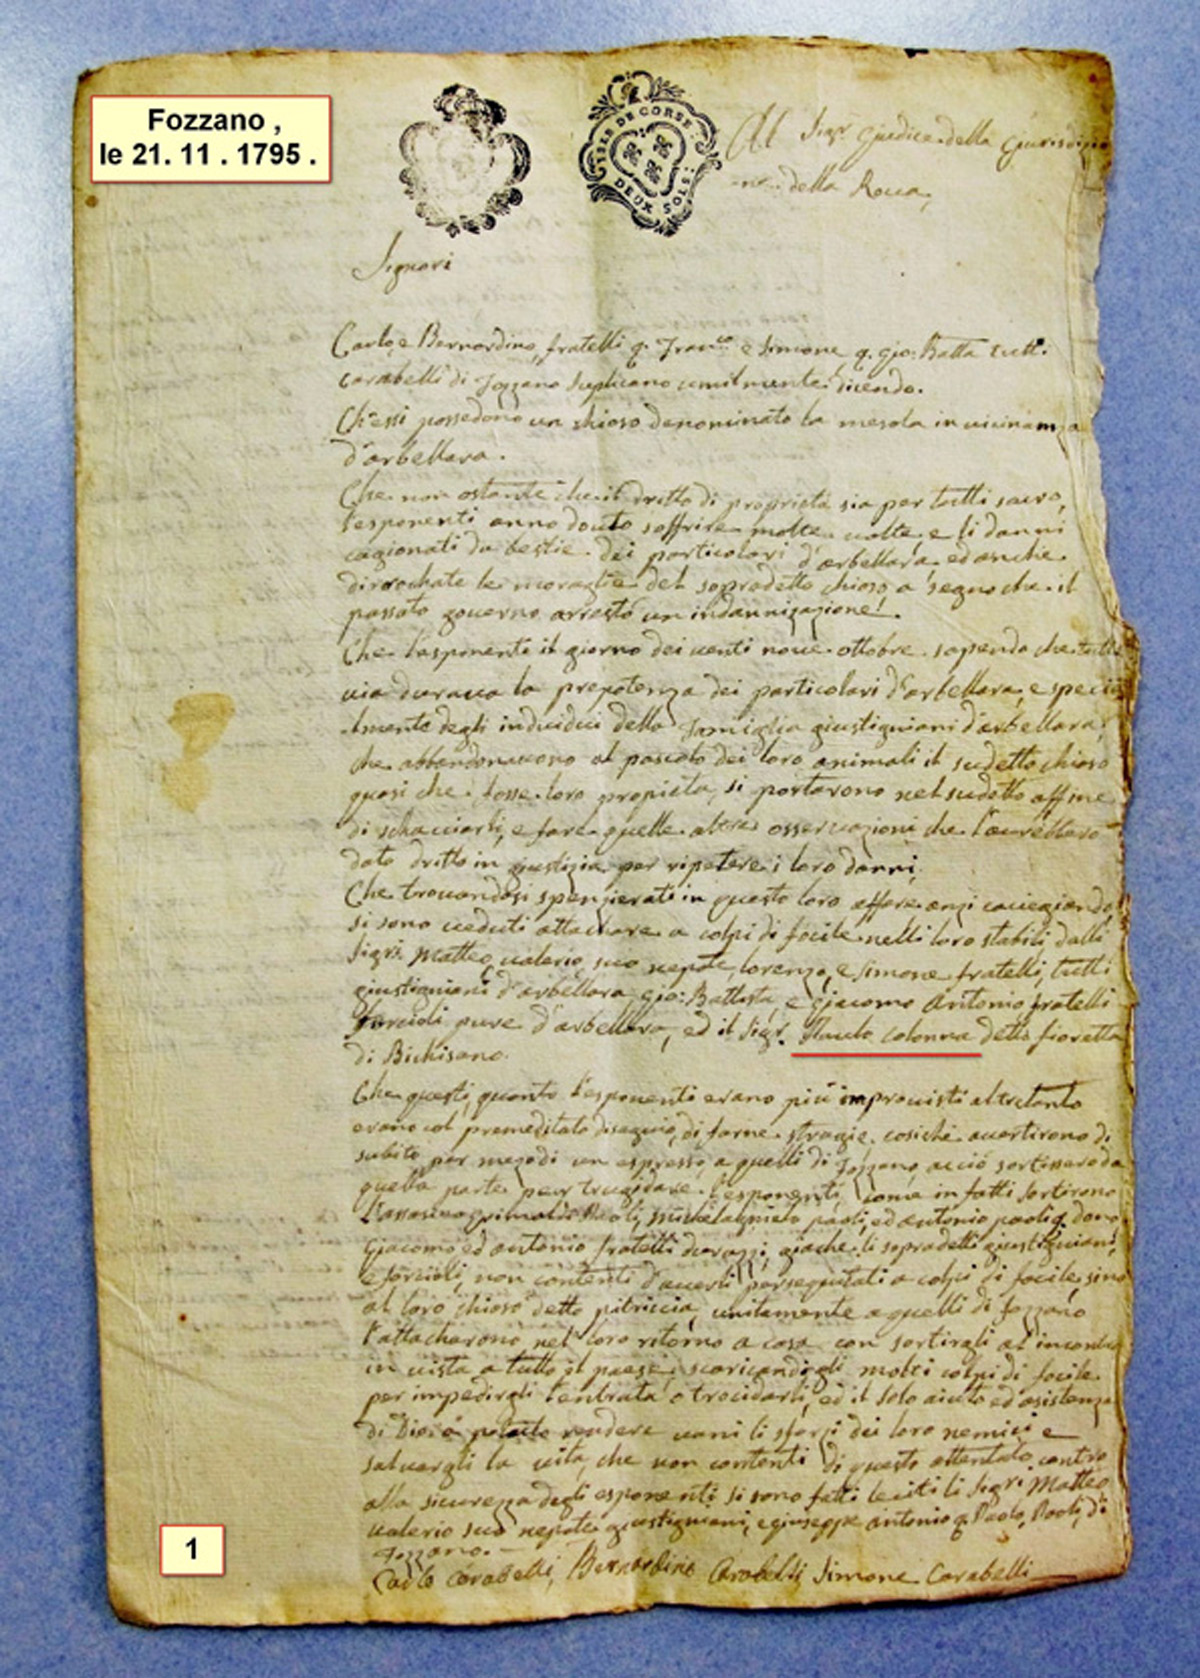 Fozzano ,
le 21. 11 . 1795 .
ISLE DE CORSE :
DEUX SOLS :
Al Sigr Giudice della Giurisdizio
ne della Rocca,
Signori
Carlo, e Bernardino, fratelli q. Franco e Simone q. Gio: Batta tutti
Carabelli di Fozzano suplicano umilmente dicendo.
Ch'essi possedono un chioso denominato la mesola in vicinanza
d'arbellara.
Che non ostante che il dritto di proprietá sia per tutti sacro,
l'esponenti anno douto soffrire molte volte, e li danni
cagionati da bestie dei particolari d'arbellara, ed anche
dirrochate le moraglie del sopradetto chioso a segno che il
passato governo arrestó un indannizazione.
Che l'esponenti il giorno dei venti nove ottobre sapendo che tutta
via durava la prepotenza dei particolari d'arbellara, e specia
lmente degli individui della famiglia giustigniani d'arbellara,
che abbandonavono al pascolo dei loro animali il sudetto chioso
quasi che fosse loro propieta, si portarono nel sudetto affine
di schacciarli, e fare quelle altre osservazioni che l'avrebbero
dato dritto in giustizia per ripetere i loro danni.
Che trovandosi spenzierati in questo loro affare anzi cacciando,
si sono veduti attachare a colpi di focile nelli loro stabili dalli
Sigri Matteo, valerio, suo nepote, lorenzo, e Simone fratelli, tutti
giustigniani d'arbellara, gio: Battista, e giacomo Antonio fratelli
forcioli pure d'arbellara, ed il Sigr. Paulo Colonna detto fioretta
di Bichisano.
Che questi, quanto l'esponenti erano piú improvisti altretanto
erano col premeditato disegnio, di farne stragie, cosiché avertirono di
subito per mezo di un espresso a quelli di Fozzano, acció sortissero da
quella parte per trugidare l'esponenti, come in fatti sortirono
grimaldo Paoli, Michelagnielo paoli, ed antonio paoli q. 
Giacomo ed antonio fratelli durazzi, giache li sopradetti giustigniani,
e forcioli, non contenti d'averli perseguitati a colpi di focile sino
al loro chioso detto pitriccia, unitamente a quelli di fozzano
l'attacharono nel loro ritorno a casa con sortirgli al'incontro
in vista a tutto il paese, scaricandogli molti colpi di focile
per impedirgli l'entrata o trocidarli, ed il solo aiuto ed asistenza
di Dio á potuto rendere vani li sforzi dei loro nemici e
salvargli la vita, che non contenti di questo attentato contro
alla sicurezza degli esponenti si sono fatti leciti li Sigri Matteo
valerio suo nepote giustigniani, e giuseppe antonio q. Paolo, Paoli, di
Fozzano.
Carlo Carabelli, Bernardino Carabelli, Simone Carabelli
1